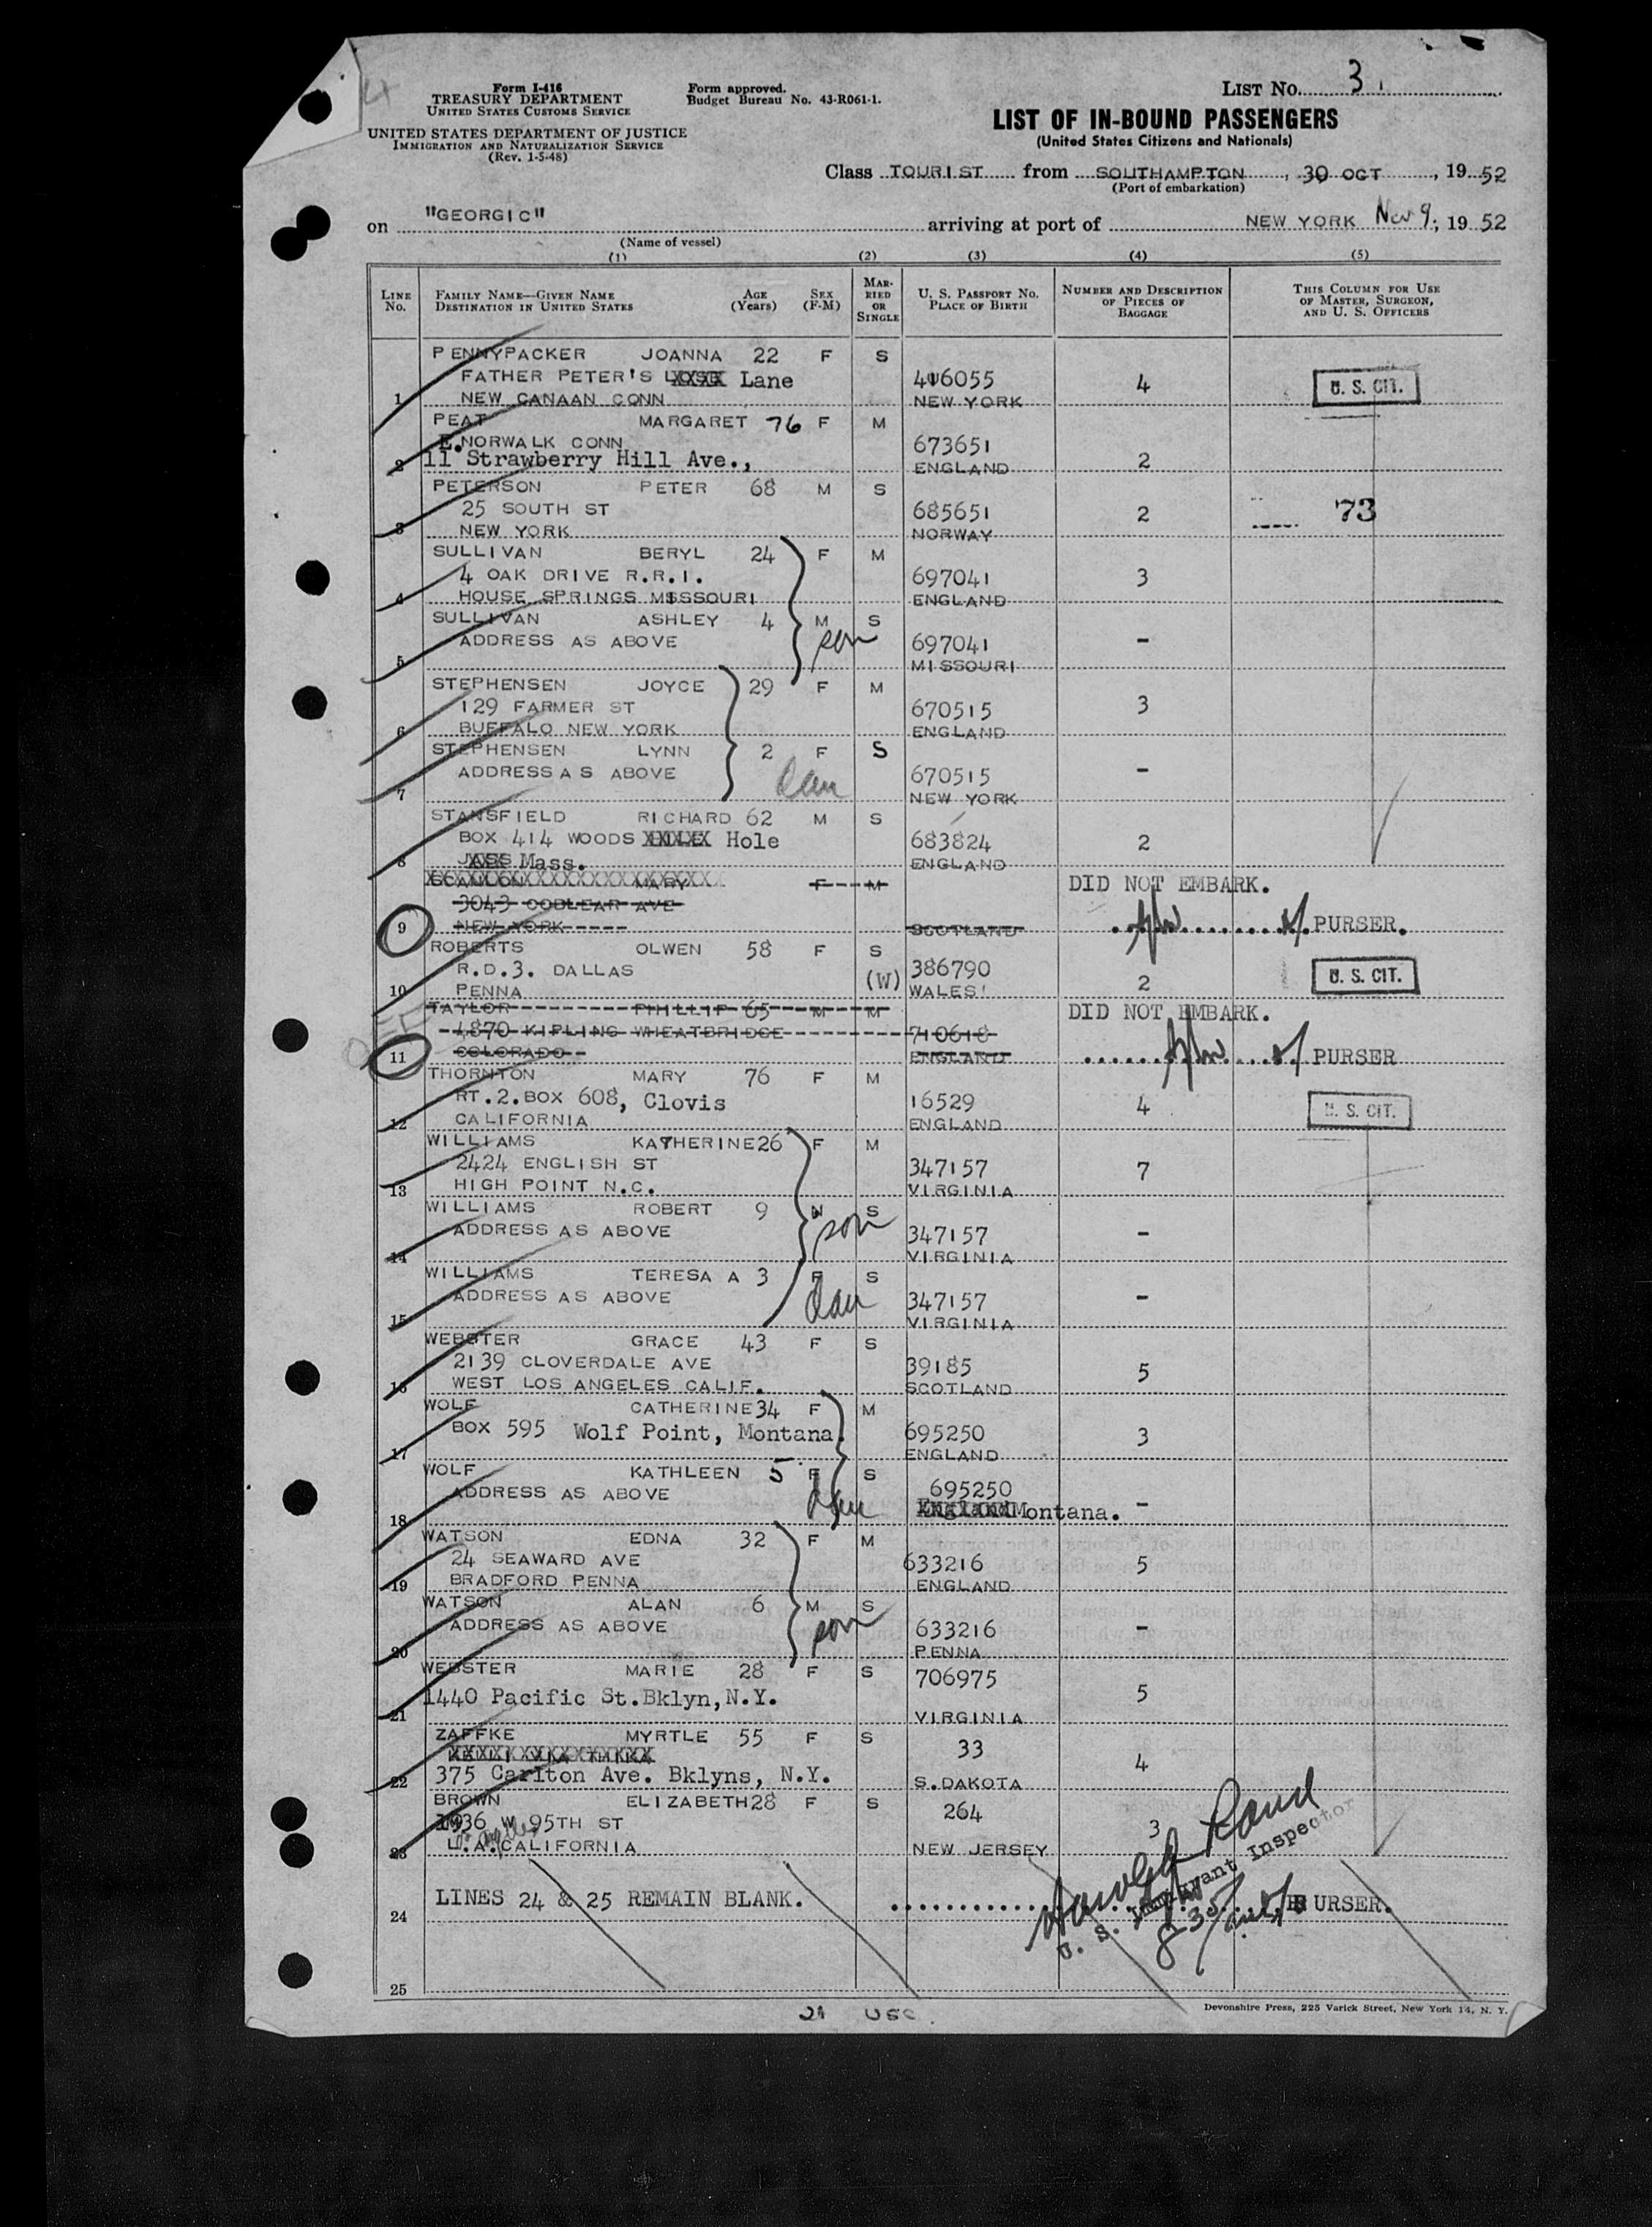 4
Form I-416
TREASURY DEPARTMENT
UNITED STATES CUSTOMS SERVICE
UNITED STATES DEPARTMENT OF JUSTICE
IMMIGRATION AND NATURALIZATION SERVICE
(Rev. 1-5-48)
Form approved.
Budget Bureau No. 43-R061-1.
LIST NO. 3
LIST OF IN-BOUND PASSENGERS
(United States Citizens and Nationals)
Class TOURIST from SOUTHAMPTON, 30 OCT, 1952
(Port of embarkation)
on "GEORGIC" arriving at port of NEW YORK Nov 9, 1952
(Name of vessel)
(1) (2) (3) (4) (5)
LINE NO. FAMILY NAME—GIVEN NAME DESTINATION IN UNITED STATES AGE (Years) SEX (F-M) MARRIED OR SINGLE U. S. PASSPORT NO. PLACE OF BIRTH NUMBER AND DESCRIPTION OF PIECES OF BAGGAGE THIS COLUMN FOR USE OF MASTER, SURGEON, AND U. S. OFFICERS
PENNYPACKER JOANNA 22 F S
FATHER PETER'S Lane 406055 4 U. S. CIT.
1 NEW CANAAN CONN NEW YORK
PEAT MARGARET 76 F M
E. NORWALK CONN 673651
2 11 Strawberry Hill Ave., ENGLAND 2
PETERSON PETER 68 M S
25 SOUTH ST 685651 2 73
3 NEW YORK NORWAY
SULLIVAN BERYL 24 F M
4 OAK DRIVE R.R.I. 697041 3
4 HOUSE SPRINGS MISSSOURI ENGLAND
SULLIVAN ASHLEY 4 M S
ADDRESS AS ABOVE son 697041 -
5 MISSOURI
STEPHENSEN JOYCE 29 F M
129 FARMER ST 670515 3
6 BUFFALO NEW YORK ENGLAND
STEPHENSEN LYNN 2 F S
ADDRESS AS ABOVE dau 670515 -
7 NEW YORK
STANSFIELD RICHARD 62 M S
BOX 414 WOODS Hole 683824 2
8 Mass. ENGLAND
SCANLON MARY F M DID NOT EMBARK.
3043 COBLEAR AVE
9 NEW YORK SCOTLAND PURSER.
ROBERTS OLWEN 58 F S
R.D.3. DALLAS (W) 386790 U. S. CIT.
10 PENNA WALES 2
TAYLOR PHILLIP 65 M M DID NOT EMBARK.
4870 KIPLING WHEATBRIDGE 710618
11 COLORADO ENGLAND PURSER
THORNTON MARY 76 F M
RT.2.BOX 608, Clovis 16529 4 U. S. CIT.
12 CALIFORNIA ENGLAND
WILLIAMS KATHERINE 26 F M
2424 ENGLISH ST 347157 7
13 HIGH POINT N.C. VIRGINIA
WILLIAMS ROBERT 9 M S
ADDRESS AS ABOVE son 347157 -
14 VIRGINIA
WILLIAMS TERESA A 3 F S
ADDRESS AS ABOVE dau 347157 -
15 VIRGINIA
WEBSTER GRACE 43 F S
2139 CLOVERDALE AVE 39185 5
16 WEST LOS ANGELES CALIF. SCOTLAND
WOLF CATHERINE 34 F M
BOX 595 Wolf Point, Montana. 695250 3
17 ENGLAND
WOLF KATHLEEN 5 F S
ADDRESS AS ABOVE dau 695250 -
18 England Montana.
WATSON EDNA 32 F M
24 SEAWARD AVE 633216 5
19 BRADFORD PENNA ENGLAND
WATSON ALAN 6 M S
ADDRESS AS ABOVE son 633216 -
20 PENNA
WEBSTER MARIE 28 F S 706975
1440 Pacific St.Bklyn,N.Y. 5
21 VIRGINIA
ZAFFKE MYRTLE 55 F S 33
4
22 375 Carlton Ave. Bklyns, N.Y. S.DAKOTA
BROWN ELIZABETH 28 F S 264
1936 W 95TH ST 3
23 L.A. CALIFORNIA NEW JERSEY
Harold Rand
U. S. Immigrant Inspector
LINES 24 & 25 REMAIN BLANK. PURSER.
24
25
21 USC.
Devonshire Press, 225 Varick Street, New York 14, N. Y.